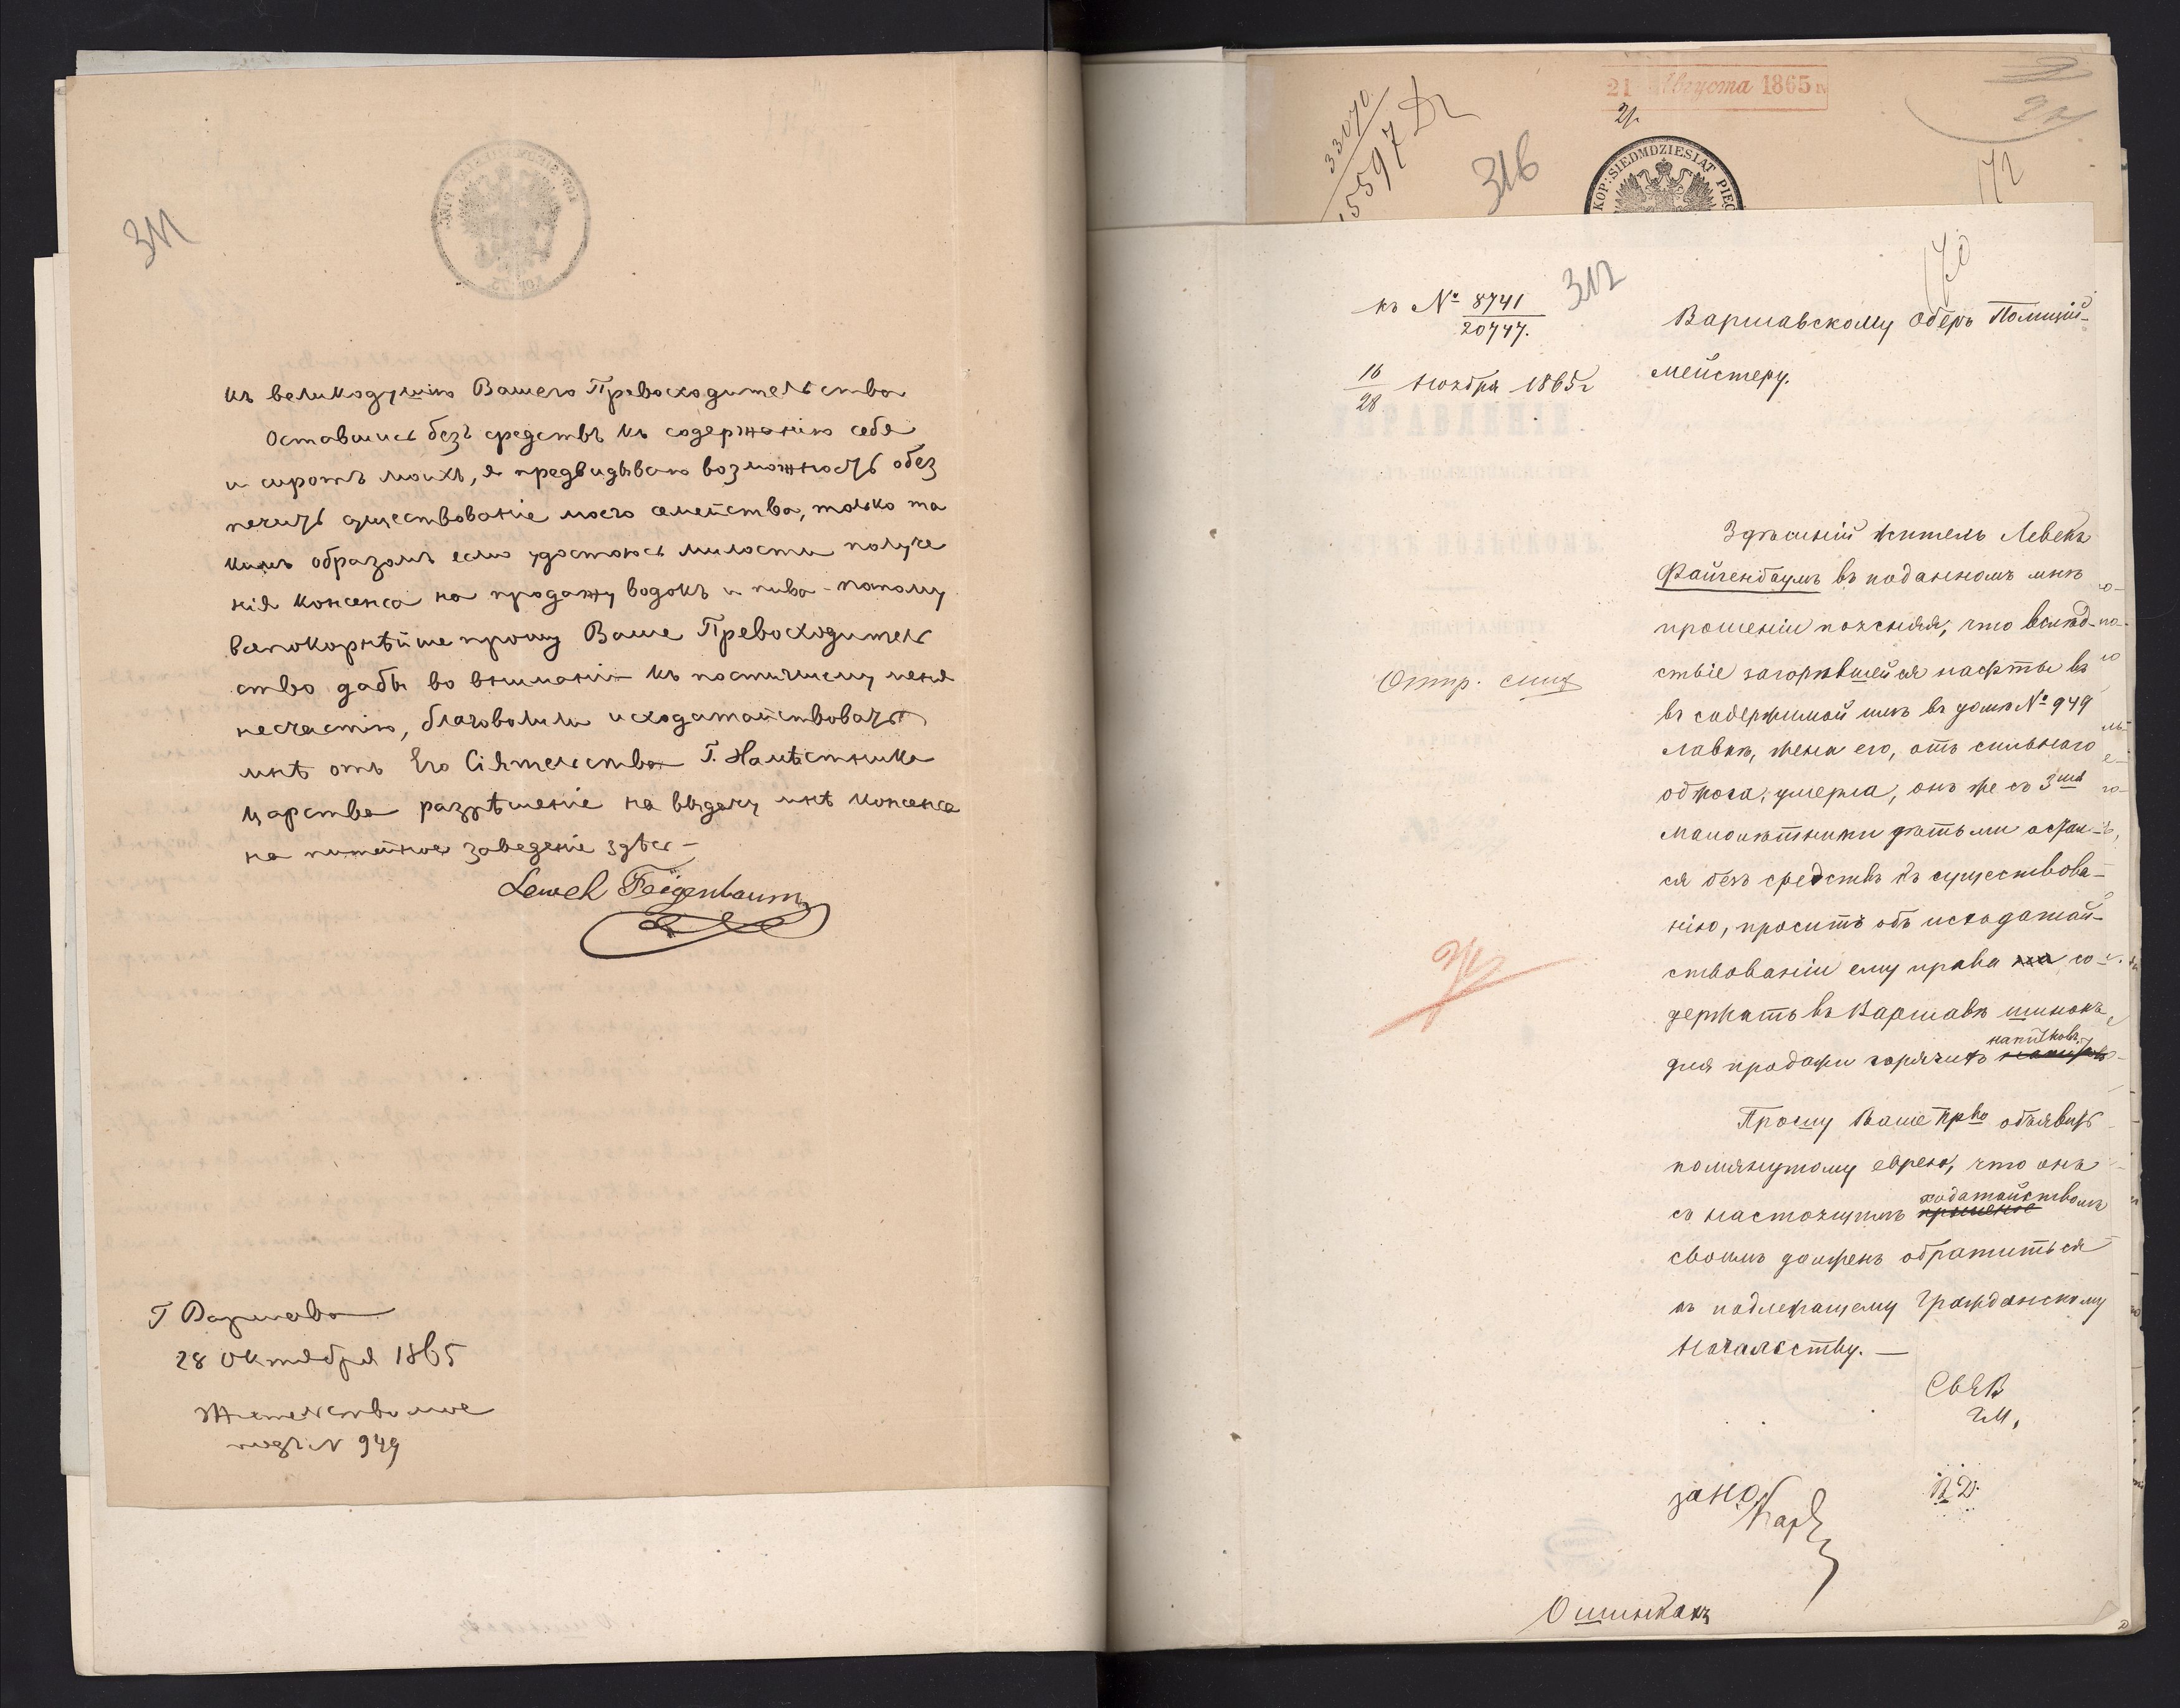 311
къ великодушію Вашего Превосходительства
Оставшись безъ средствъ къ содержанію себя
и сиротъ моихъ, я предвидываю возможность обез
печить существованіе моего семейства, только та
кимъ образомъ если удостоюсь милости получе
нія консенса на продажу водокъ и пива - потому
всепокорнѣйше прошу Ваше Превосходитель
ство дабы во вниманіи къ постигшему меня
несчастію, благоволили исходатайствовать
мнѣ отъ Его Сіятельства Г. Намѣстника
Царства разрѣшеніе на выдачу мнѣ консенса
на питейное заведеніе здѣсь -
Lewek Feigenbaum
Г Варшава
28 Октября 1865
Жительство мое
подъ N 949
21 Августа 1865
21
33070
15597
316
KOP: SIEDMDZIESIĄT PIĘĆ
172
170
312
къ № 8741
20747.
16
28 Ноября 1865 г
Варшавскому Оберъ Полицій-
мейстеру.
Отпр.
Здѣшній житель Левекъ
Файгенбаумъ въ поданномъ мнѣ
прошеніи поясняя, что вслѣд-
ствіе загорѣвшейся нафты въ
въ содержимой имъ въ домѣ № 949
лавкѣ, жена его, отъ сильнаго
обжога, умерла, онъ же съ 3мя
малолѣтними дѣтьми остал-
ся безъ средствъ къ существова-
нію, проситъ объ исходатай-
ствованіи ему права на со-
держать въ Варшавѣ шинокъ,
для продажи горячихъ напитковъ.
Прошу Ваше Прво объявить
помянутому еврею, что онъ
съ настоящимъ ходатайствомъ
своимъ долженъ обратиться
къ подлежащему Гражданскому
Начальству. —
О шинкахъ